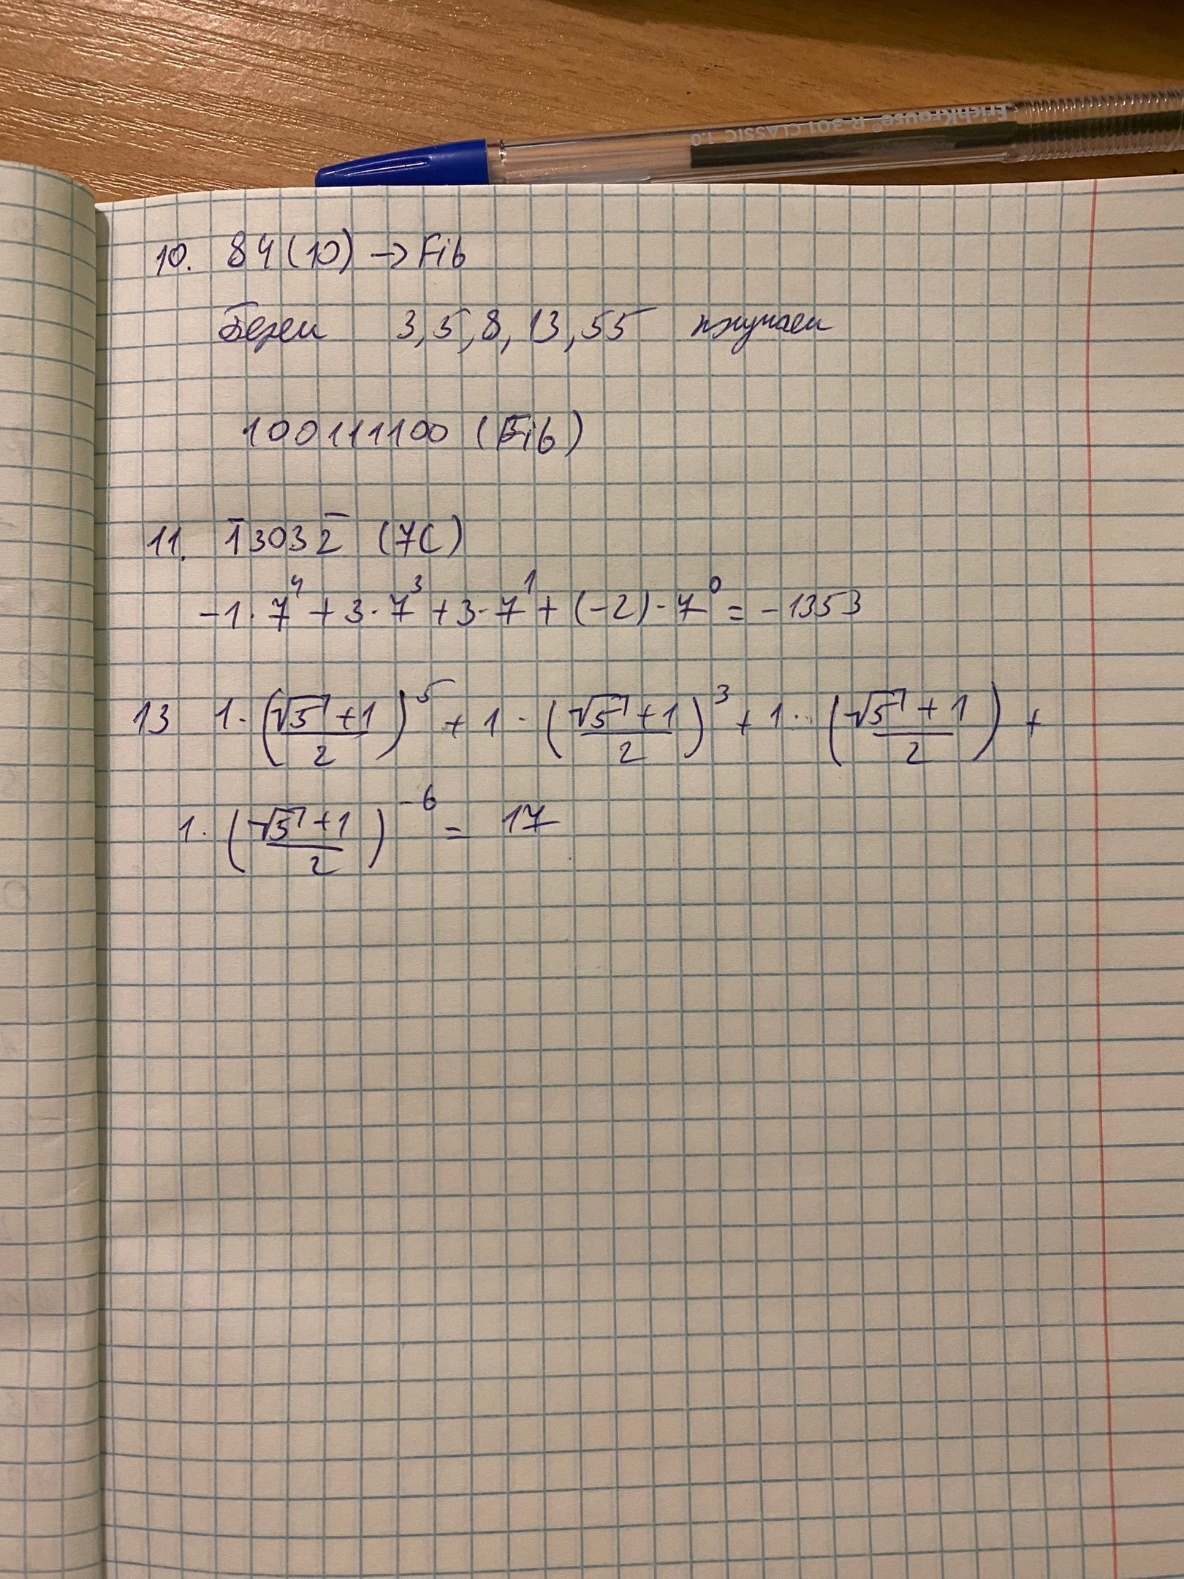 ErichKrause® R-301 CLASSIC 1.0
10. 84(10) → Fib
Берем 3, 5, 8, 13, 55 получаем
100111100 (Fib)
11. 1̅3032̅ (7C)
-1·7⁴ + 3·7³ + 3·7¹ + (-2)·7⁰ = -1353
13 1·((√5+1)/2)⁵ + 1·((√5+1)/2)³ + 1·((√5+1)/2) +
1·((√5+1)/2)⁻⁶ = 17